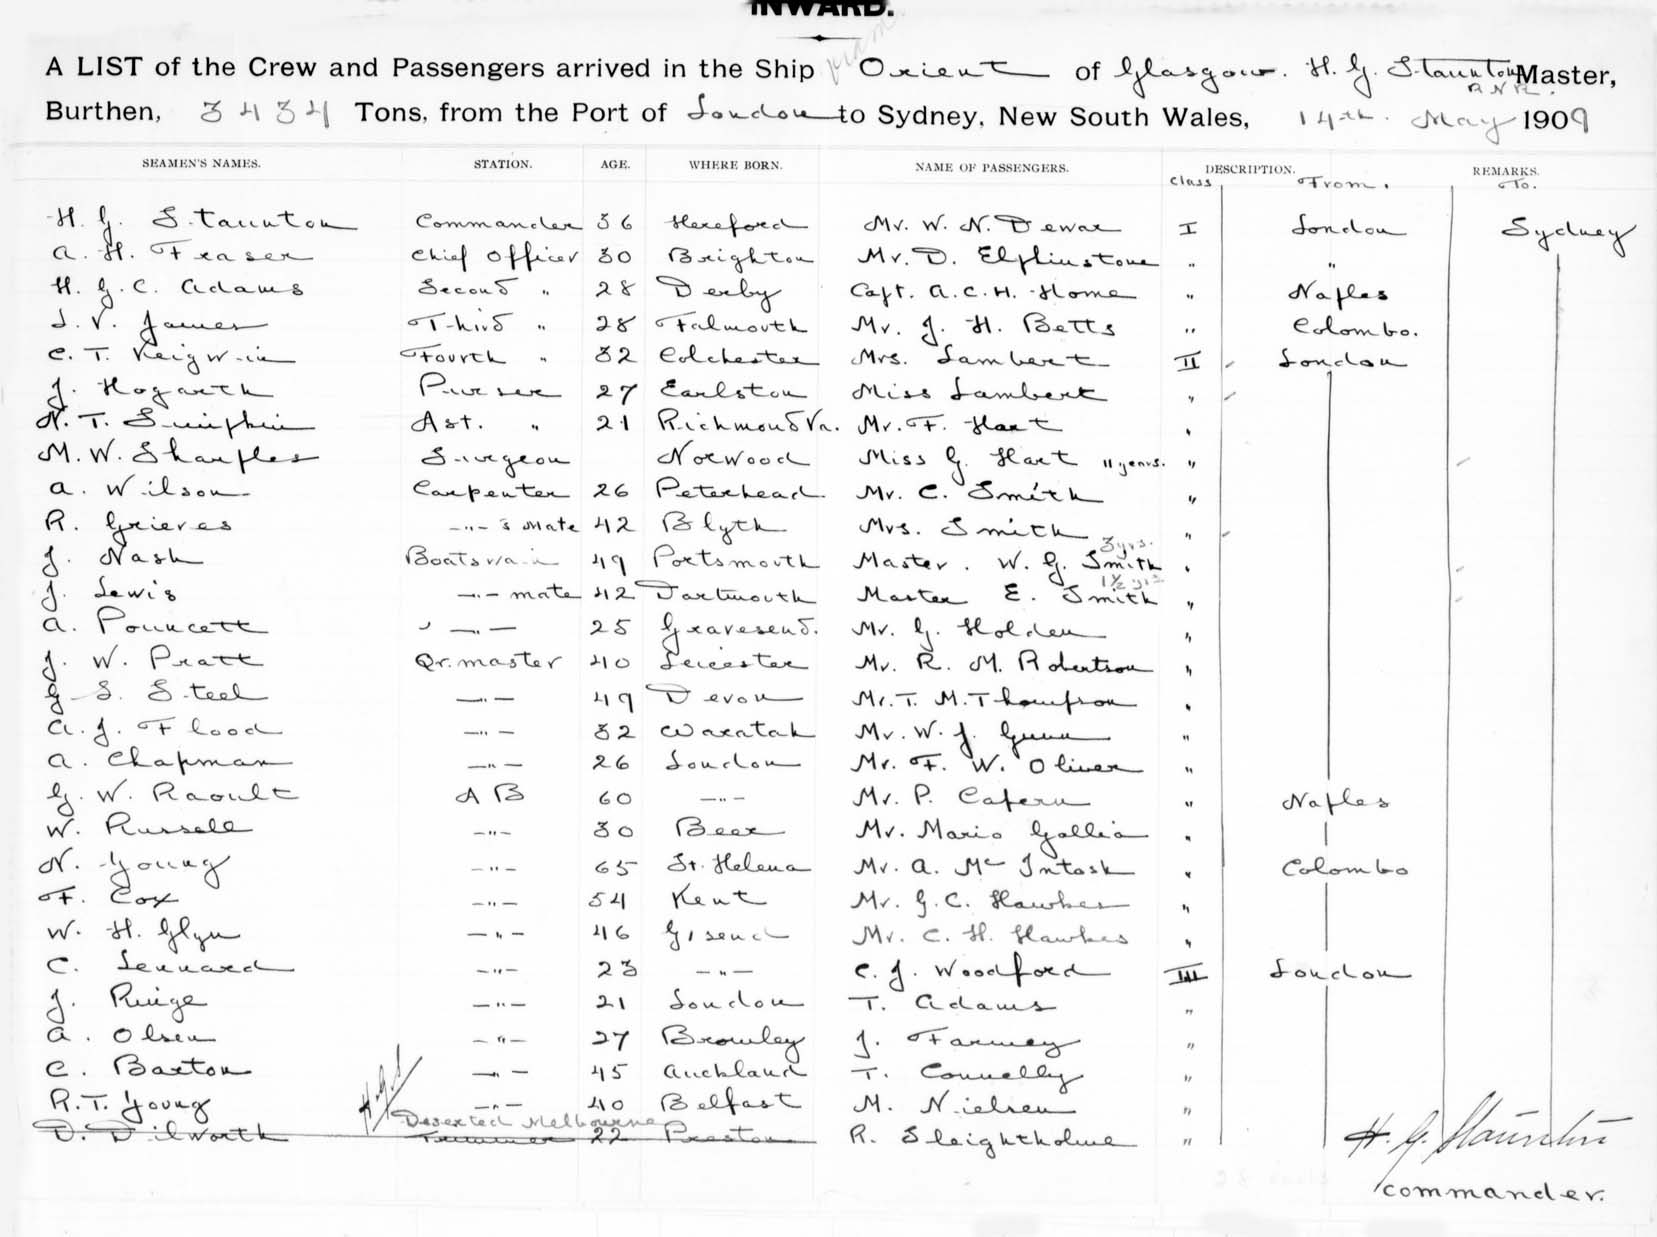 INWARD.
A LIST of the Crew and Passengers arrived in the Ship Orient of Glasgow. H. G. Staunton Master,
R.N.R.
Burthen, 3434 Tons, from the Port of London to Sydney, New South Wales, 14th. May 1909
SEAMEN'S NAMES. STATION. AGE. WHERE BORN. NAME OF PASSENGERS. DESCRIPTION. REMARKS.
Class From. To.
H. G. Staunton Commander 36 Hereford Mr. W. N. Dewar I London Sydney
A. H. Fraser Chief Officer 30 Brighton Mr. D. Elphinstone " "
H. G. C. Adams Second " 28 Derby Capt. A. C. H. Home " Naples
L. V. James Third " 28 Falmouth Mr. J. H. Betts " Colombo.
C. T. Keigwin Fourth " 32 Colchester Mrs. Lambert II London
J. Hogarth Purser 27 Earlston Miss Lambert "
N. T. Simpkin Ast. " 21 Richmond Va. Mr. F. Hart "
M. W. Sharples Surgeon Norwood Miss G. Hart 11 years. "
A. Wilson Carpenter 26 Peterhead. Mr. C. Smith "
R. Grieves —"— s Mate 42 Blyth Mrs. Smith "
J. Nash Boatswain 49 Portsmouth Master. W. G. Smith 3 yrs. "
J. Lewis —"— mate 42 Dartmouth Master E. Smith 1½ yrs "
A. Pouncett " —"— 25 Gravesend. Mr. G. Holden "
J. W. Pratt Qr. master 40 Leicester Mr. R. M. Robertson "
G. S. Steel —"— 49 Devon Mr. T. M. Thompson "
A. J. Flood —"— 32 Waratah Mr. W. J. Gunn "
A. Chapman —"— 26 London Mr. F. W. Oliver "
G. W. Raoult A B 60 —"— Mr. P. Cafern " Naples
W. Russell —"— 30 Beer Mr. Mario Gallia "
N. Young —"— 65 St. Helena Mr. A. McIntosh " Colombo
F. Cox —"— 54 Kent Mr. G. C. Hawkes "
W. H. Glyn —"— 46 G'send Mr. C. H. Hawkes "
C. Lennard —"— 23 —"— C. J. Woodford III London
J. Ringe —"— 21 London T. Adams "
A. Olsen —"— 27 Bromley J. Farmey "
C. Barton —"— 45 Auckland T. Connelly "
R. T. Young —"— 40 Belfast M. Nielsen "
H.G.S Deserted Melbourne
D. Dilworth Trimmer 22 Preston R. Sleightholme "
H. G. Staunton
Commander.